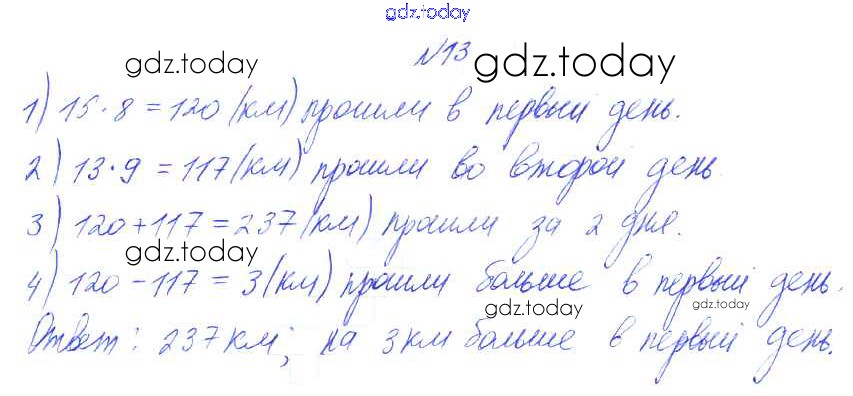 gdz.today
№13 gdz.today
gdz.today
1) 15·8 = 120 (км) прошли в первый день.
2) 13·9 = 117 (км) прошли во второй день
gdz.today
3) 120+117 = 237 (км) прошли за 2 дня.
gdz.today
4) 120-117 = 3 (км) прошли больше в первый день.
gdz.today gdz.today
Ответ: 237 км; на 3 км больше в первый день.